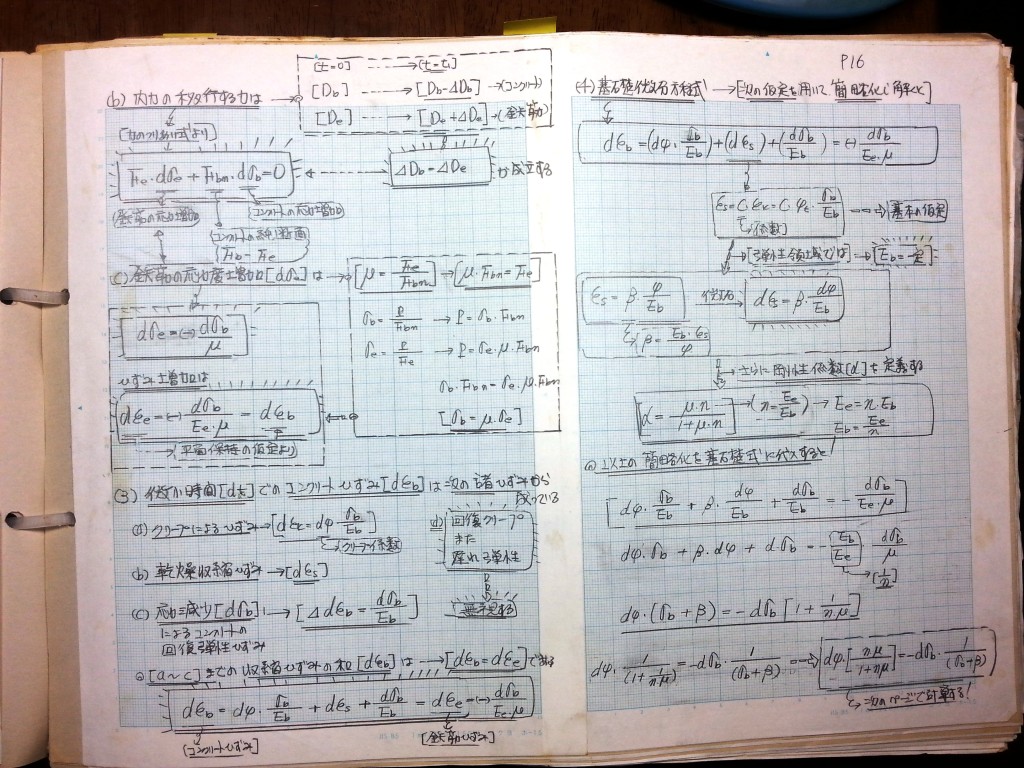 P16
(b) 内力の移行する力は
[t=0] → [t=t₁]
[D_b] → [D_b-ΔD_b] →(コンクリート)
[D_e] → [D_e+ΔD_e] →(鉄筋)
[力のつり合い式より]
F_e・dσ_e + F_bn・dσ_b = 0
ΔD_b = ΔD_e
が成立する
(鉄筋の応力増加)
コンクリートの応力増加
コンクリートの純断面
F_b - F_e
(c) 鉄筋の応力度増加[dσ_e]は→
[μ = F_e/F_bn] → [μ・F_bn = F_e]
dσ_e = (-) dσ_b/μ
σ_b = P/F_bn → P = σ_b・F_bn
σ_e = P/F_e → P = σ_e・μ・F_bn
σ_b・F_bn = σ_e・μ・F_bn
[σ_b = μ・σ_e]
ひずみ増加は
dε_e = (-) dσ_b/(E_e・μ) = dε_b
→[平面保持の仮定より]
(3) 微小時間[dt]でのコンクリートひずみ[dε_b]は次の諸ひずみから
成っている
(a) クリープによるひずみ→[dε_c = dφ・σ_b/E_b]
クリープ係数
(b) 乾燥収縮ひずみ→[dε_s]
(c) 応力減少[dσ_b]→[Δdε_b = dσ_b/E_b]
によるコンクリートの
回復弾性ひずみ
d) 回復クリープ
また
遅れ弾性
無視する
[a~c]までの収縮ひずみの和[dε_b]は→[dε_b = dε_e]である
dε_b = dφ・σ_b/E_b + dε_s + dσ_b/E_b = dε_e = (-) dσ_b/(E_e・μ)
[コンクリートひずみ]
[鉄筋ひずみ]
(4) 基礎微分方程式→[次の仮定を用いて簡略化し解くと]
dε_b = (dφ・σ_b/E_b) + (dε_s) + (dσ_b/E_b) = (-) dσ_b/(E_e・μ)
ε_s = C・ε_k = C・φ_t・σ_b/E_b → 基本の仮定
係数]
→[弾性領域では]→[E_b = 一定]
ε_s = β・φ/E_b
微分
dε_s = β・dφ/E_b
β = E_b・ε_s/φ
→さらに 剛性係数[α]を定義する
α = μ・n/(1+μ・n) → (n = E_e/E_b) → E_e = n・E_b
E_b = E_e/n
以上の簡略化を基礎式に代入すると
[dφ・σ_b/E_b + β・dφ/E_b + dσ_b/E_b = - dσ_b/(E_e・μ)]
dφ・σ_b + β・dφ + dσ_b = -[E_b/E_e]・dσ_b/μ
→[1/n]
dφ・(σ_b + β) = -dσ_b [1 + 1/nμ]
dφ・1/(1+1/nμ) = -dσ_b・1/(σ_b+β) → dφ・[nμ/(1+nμ)] = -dσ_b・1/(σ_b+β)
→次のページで計算する!